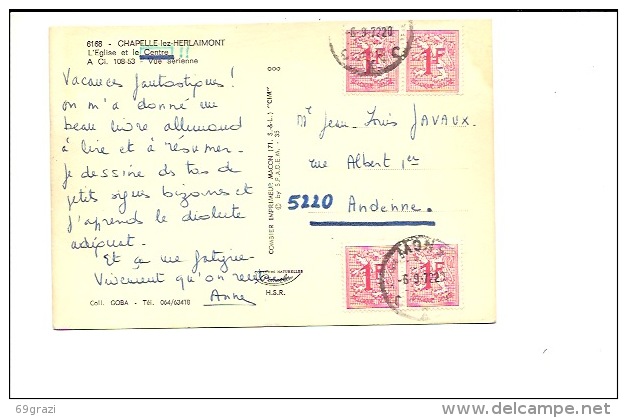 6168 - CHAPELLE lez-HERLAIMONT
L'Eglise et le Centre !!
A Ci. 108-53 - Vue aérienne
Vacances fantastiques !
on m'a donné un
beau livre allemand
à lire et à résumer -
je dessine des tas de
petits signes bizarres et
j'apprends le dialecte
adéquat.
Et ça me fatigue -
Vivement qu'on
Anne
Coll. COBA - Tél. 064/63418
COMBIER IMPRIMEUR MACON (71, S.-&-L.) "CIM"
© by S.P.A.D.E.M.
H.S.R.
1F 1F
-6-9-72 20
Mr Jean-Louis JAVAUX.
rue Albert 1er
5220 Andenne.
1F 1F
MONS
-6-9-72 20
69grazi
delcampe.net